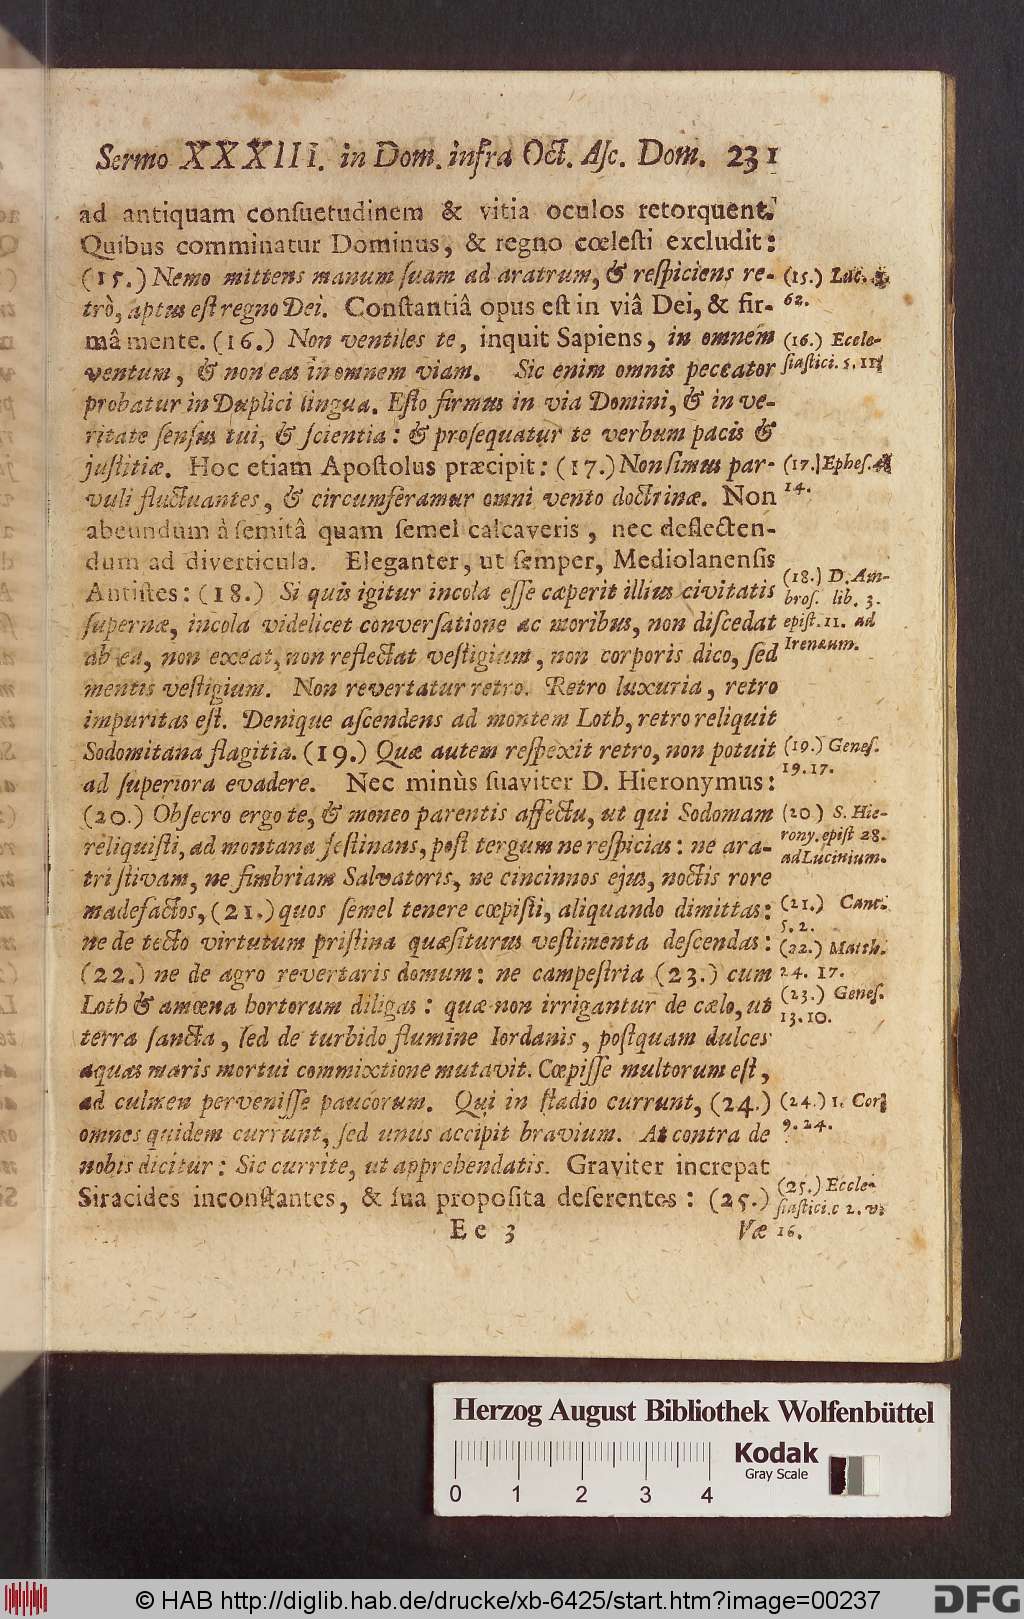 Sermo XXXIII. in Dom. infra Oct. Aſc. Dom. 231
ad antiquam conſuetudinem & vitia oculos retorquent.
Quibus comminatur Dominus, & regno cœleſti excludit:
(15.) Nemo mittens manum ſuam ad aratrum, & reſpiciens re-
trò, aptus eſt regno Dei. Conſtantiâ opus eſt in viâ Dei, & fir-
mâ mente. (16.) Non ventiles te, inquit Sapiens, in omnem
ventum, & non eas in omnem viam. Sic enim omnis peccator
probatur in Duplici lingua. Eſto firmus in via Domini, & in ve-
ritate ſenſus tui, & ſcientia: & proſequatur te verbum pacis &
juſtitiæ. Hoc etiam Apoſtolus præcipit: (17.) Non ſimus par-
vuli fluctuantes, & circumferamur omni vento doctrinæ. Non
abeundum à ſemitâ quam ſemel calcaveris, nec deflecten-
dum ad diverticula. Eleganter, ut ſemper, Mediolanenſis
Antiſtes: (18.) Si quis igitur incola eſſe cæperit illius civitatis
ſupernæ, incola videlicet converſatione ac moribus, non diſcedat
ab ea, non exeat, non reflectat veſtigium, non corporis dico, ſed
mentis veſtigium. Non revertatur retro. Retro luxuria, retro
impuritas eſt. Denique aſcendens ad montem Loth, retro reliquit
Sodomitana flagitia. (19.) Quæ autem reſpexit retro, non potuit
ad ſuperiora evadere. Nec minùs ſuaviter D. Hieronymus:
(20.) Obſecro ergo te, & moneo parentis affectu, ut qui Sodomam
reliquiſti, ad montana feſtinans, poſt tergum ne reſpicias: ne ara-
tri ſtivam, ne fimbriam Salvatoris, ne cincinnos ejus, noctis rore
madefactos, (21.) quos ſemel tenere cœpiſti, aliquando dimittas:
ne de tecto virtutum priſtina quæſiturus veſtimenta deſcendas:
(22.) ne de agro revertaris domum: ne campeſtria (23.) cum
Loth & amœna hortorum diligas: quæ non irrigantur de cælo, ut
terra ſancta, ſed de turbido flumine Iordanis, poſtquam dulces
aquas maris mortui commixtione mutavit. Cœpiſſe multorum eſt,
ad culmen perveniſſe paucorum. Qui in ſtadio currunt, (24.)
omnes quidem currunt, ſed unus accipit bravium. At contra de
nobis dicitur: Sic currite, ut apprehendatis. Graviter increpat
Siracides inconſtantes, & ſua propoſita deſerentes: (25.)
Ee 3 Væ
(15.) Luc.
62.
(16.) Eccle-
ſiaſtici. 5. 11.
(17.) Epheſ. 4
14.
(18.) D. Am-
broſ. lib. 3.
epiſt. 11. ad
Irenæum.
(19.) Geneſ.
19. 17.
(20.) S. Hie-
rony. epiſt 28.
ad Lucinium.
(21.) Cant.
5. 2.
(22.) Matth.
24. 17.
(23.) Geneſ.
13. 10.
(24.) 1. Cor.
9. 24.
(25.) Eccle-
ſiaſtici. c 2. v.
16.
Herzog August Bibliothek Wolfenbüttel
Kodak
Gray Scale
0 1 2 3 4
© HAB http://diglib.hab.de/drucke/xb-6425/start.htm?image=00237
DFG